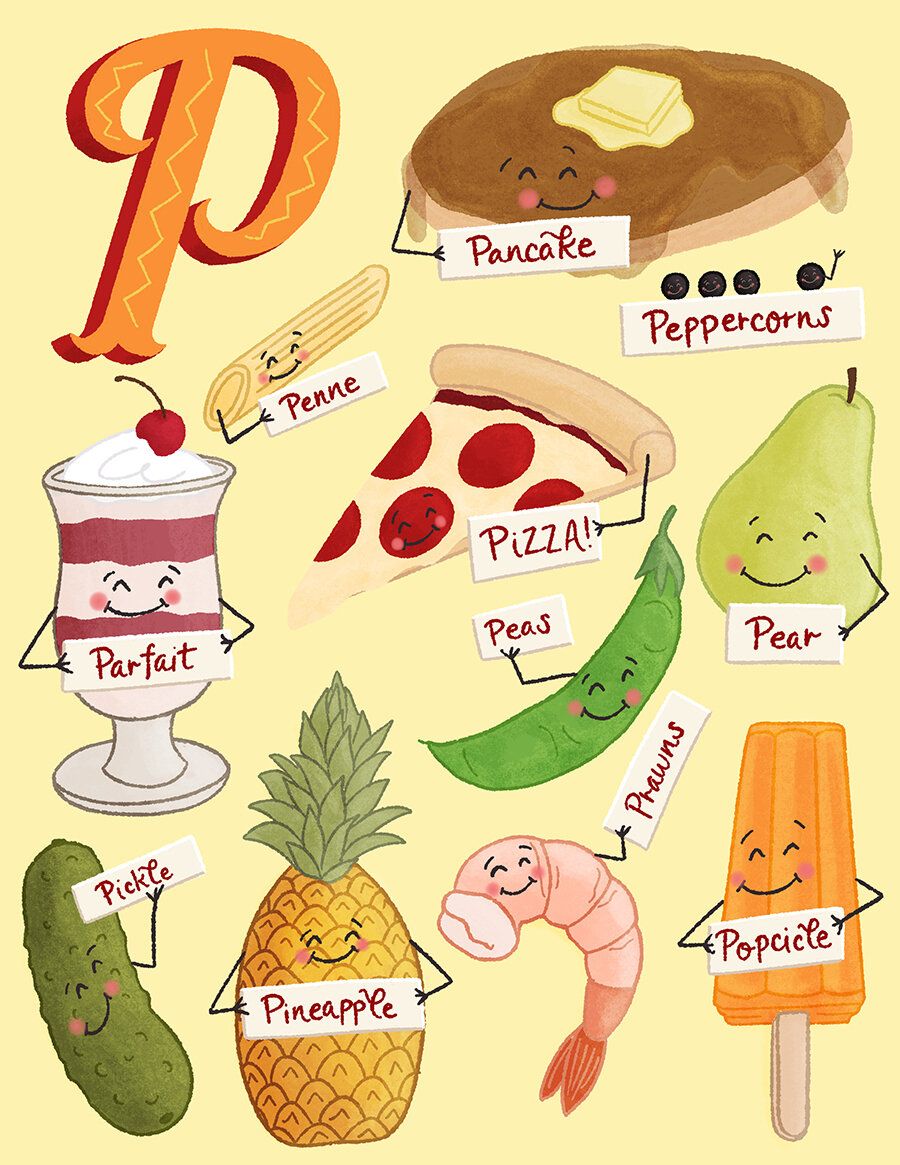 P
Pancake
Peppercorns
Penne
PiZZA!
Peas
Pear
Parfait
Prawns
Pickle
Pineapple
Popcicle